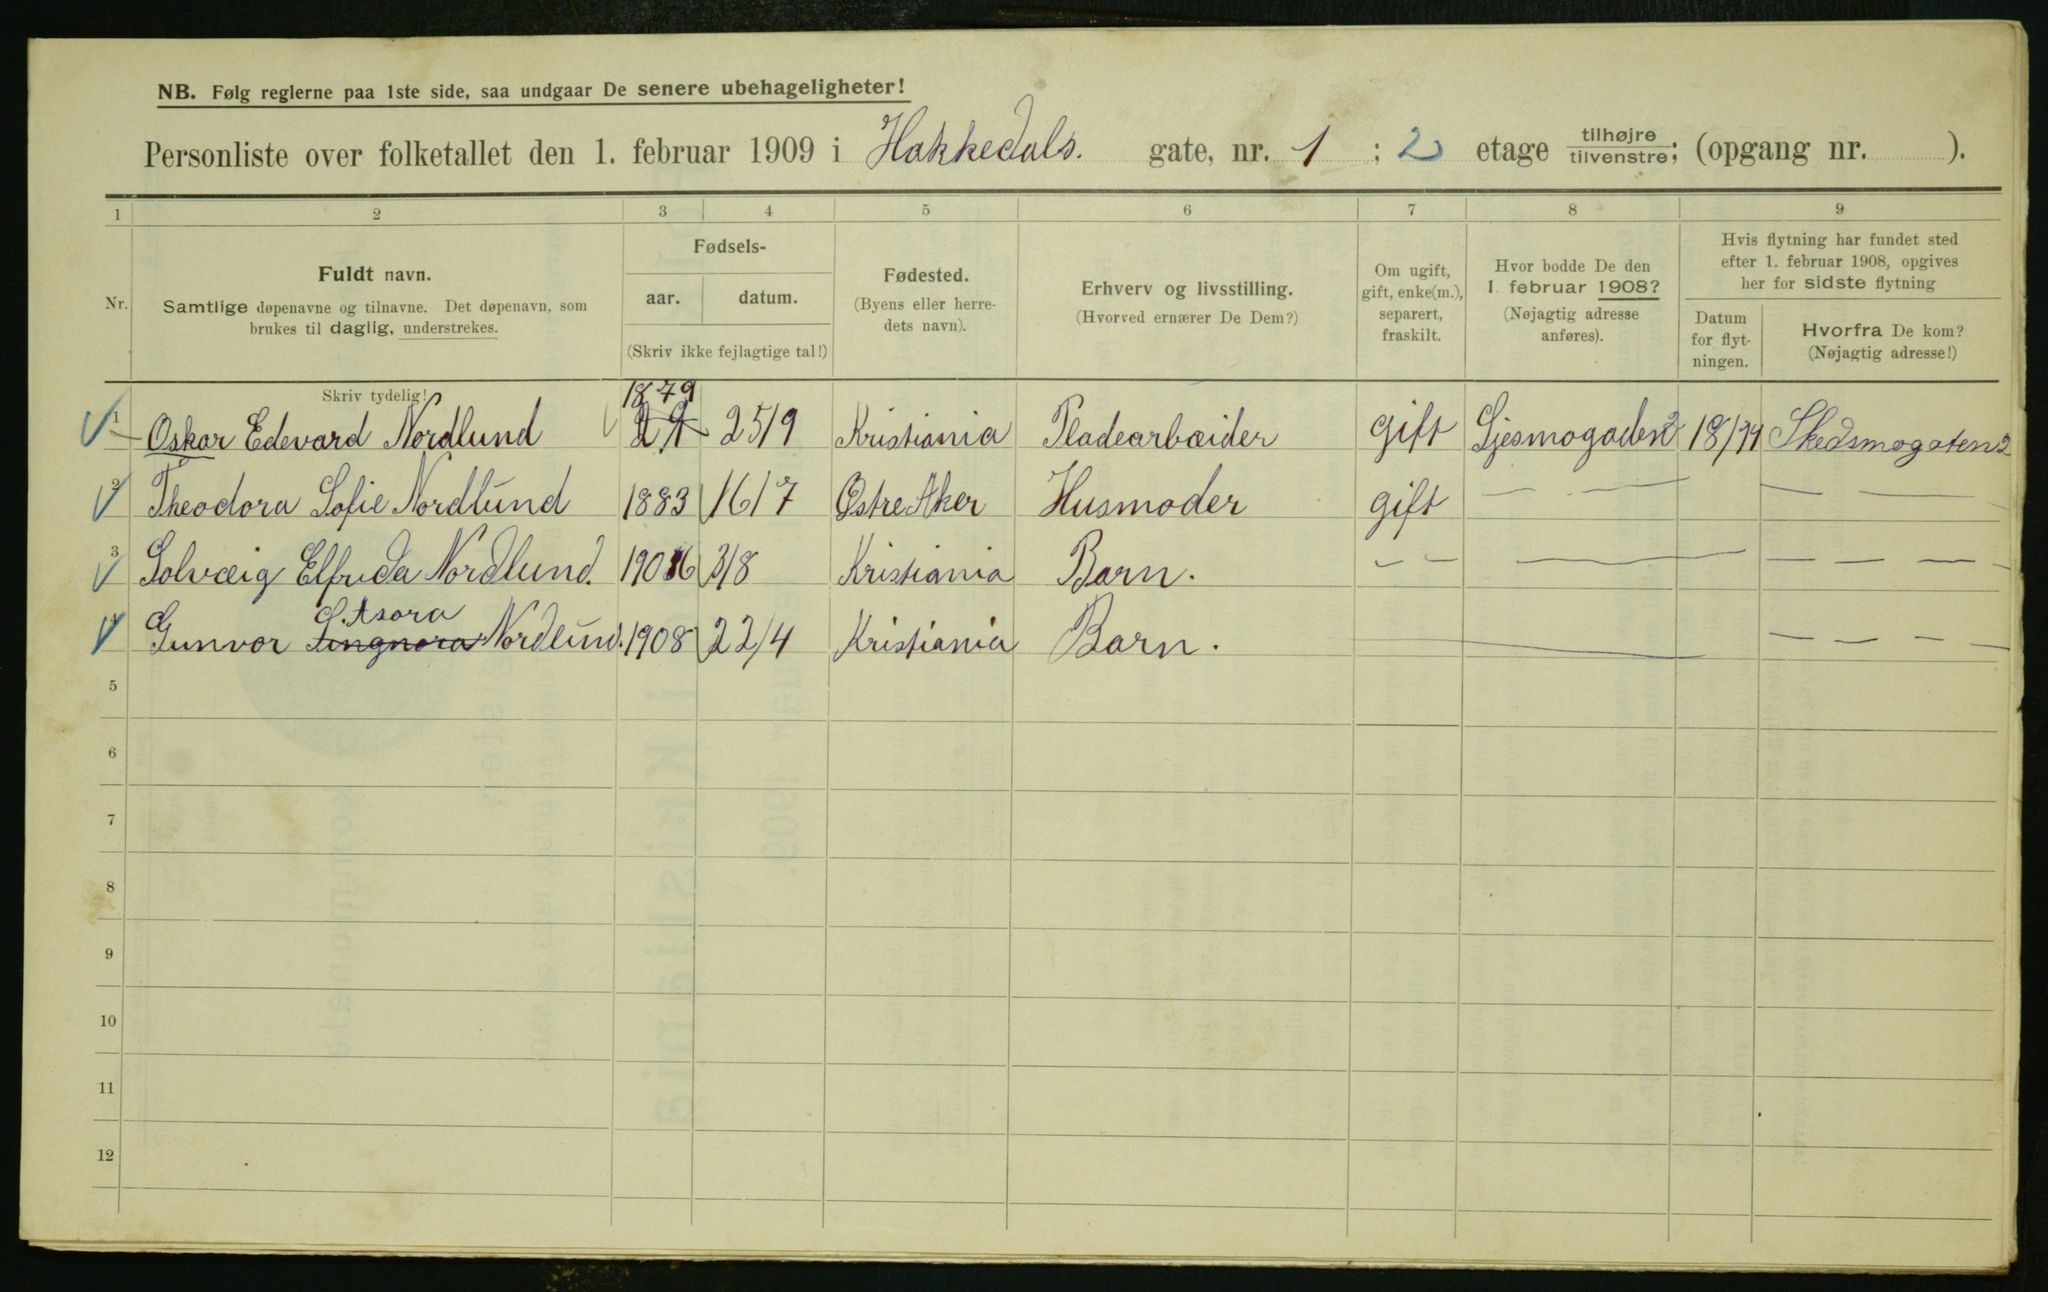 NB. Følg reglerne paa 1ste side, saa undgaar De senere ubehageligheter!
Personliste over folketallet den 1. februar 1909 i Hakkedals. gate, nr. 1 : 2 etage tilhøjre/tilvenstre; (opgang nr. ).
1 2 3 4 5 6 7 8 9
Nr.
Fuldt navn.
Samtlige døpenavne og tilnavne. Det døpenavn, som
brukes til daglig, understrekes.
Fødsels-
aar. datum.
(Skriv ikke fejlagtige tal!)
Fødested.
(Byens eller herre-
dets navn).
Erhverv og livsstilling.
(Hvorved ernærer De Dem?)
Om ugift,
gift, enke(m.),
separert,
fraskilt.
Hvor bodde De den
1 februar 1908?
(Nøjagtig adresse
anføres).
Hvis flytning har fundet sted
efter 1. februar 1908, opgives
her for sidste flytning
Datum
for flyt-
ningen.
Hvorfra De kom?
(Nøjagtig adresse!)
Skriv tydelig!
1879
1 Oskar Edevard Nordlund 25/9 Kristiania Pladearbæider gift Sjesmogaden 2 Skedsmogaten 2
2 Theodora Sofie Nordlund 1883 16/7 Østre Aker Husmoder gift — — — —
3 Solvæig Elfrida Nordlund. 1906 3/8 Kristiania Barn. — — — — — — —
Asora
4 Gunvor Nordlund. 1908 22/4 Kristiania Barn. — — — — —
5
6
7
8
9
10
11
12